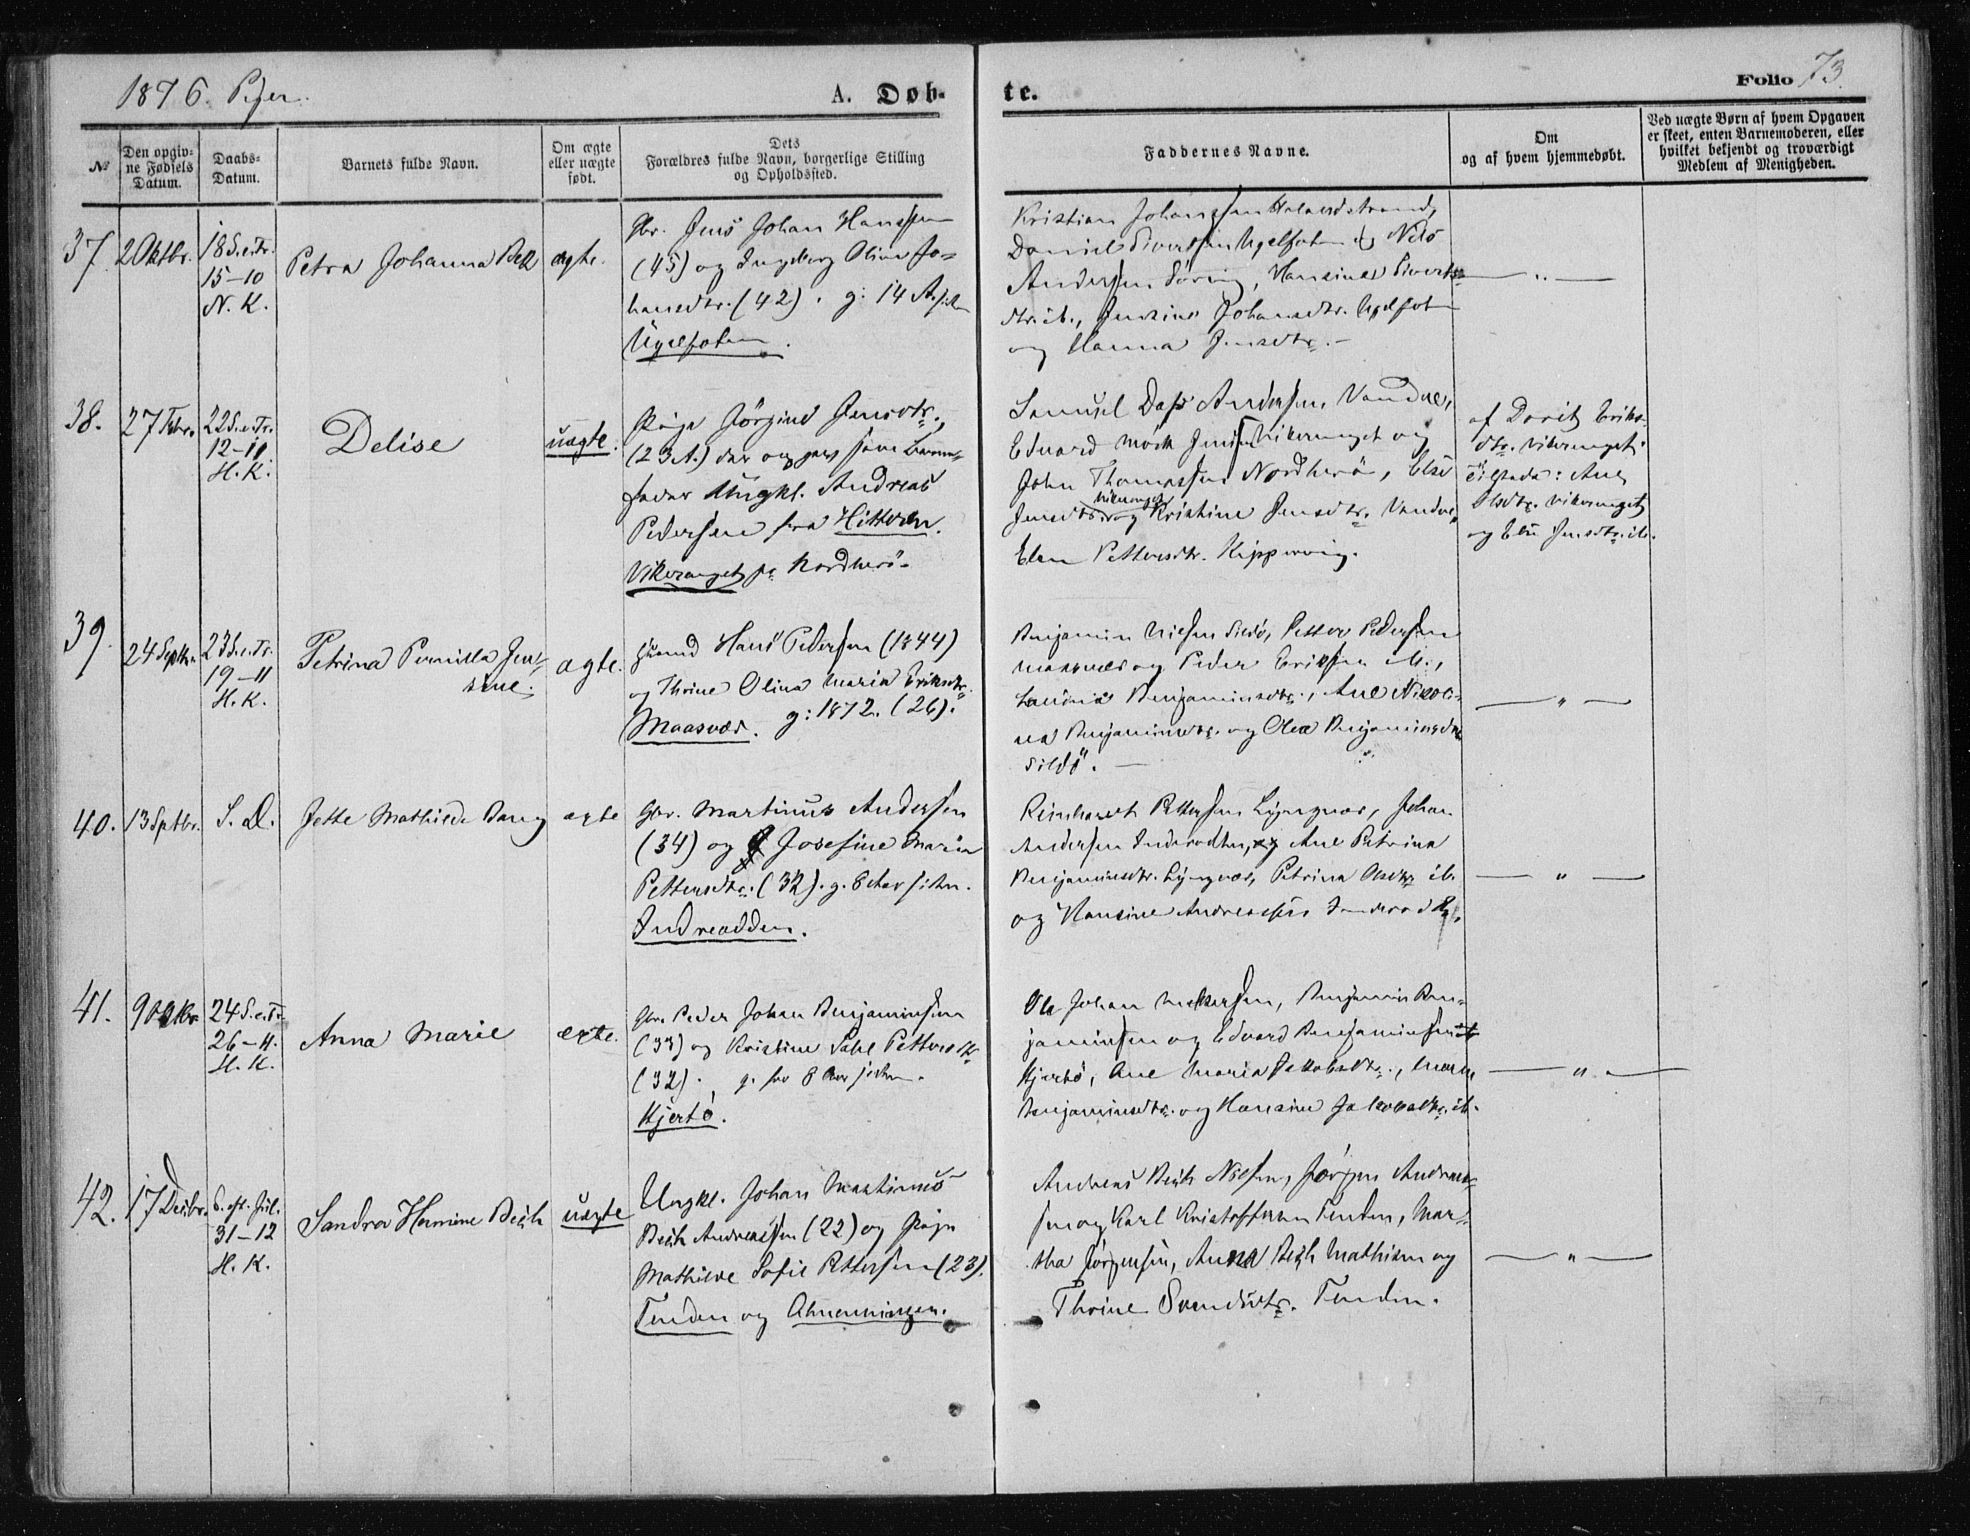 1876. Piger.
A. Døb-
te.
Folio 73.
№
Den opgiv-
ne Fødsels
Datum.
Daabs-
Datum.
Barnets fulde Navn.
Om ægte
eller uægte
født.
Dets
Forældres fulde Navn, borgerlige Stilling
og Opholdssted.
Faddernes Navne.
Om
og af hvem hjemmedøbt.
Ved uægte Børn af hvem Opgaven
er skeet, enten Barnemoderen, eller
hvilket bekjendt og troværdigt
Medlem af Menigheden.
37.
2 Oktbr.
18 S. e. Tr.
15-10
N. K.
Petra Johanna Bek
ægte.
Gbr. Jens Johan Hanssen
(45) og Ingeborg Olina Jo-
hansdtr. (42). g: 14 A. siden
Ugelfoten.
Kristian Johanssen
Daniel Sivertssen Ugelfoten og Nils
Anderssen Søvig, Hansine Siverts-
dtr. ib., Jensine Johansdtr. Ugelfoten
og Hanna Jensdtr. -
— " —
38.
27 Febr.
22 S. e. Tr.
12-11
H. K.
Delise
uægte.
Pige Jørgine Jensdtr.,
(23 A.) der opgav som Barne-
fader Ungkl. Andreas
Pederssen fra Hitteren.
Vikeranget pr Nordherø.
Samuel Dass Anderssen Vandve,
Edvard Mørk Jenssen Vikeranget og
John Thomassen Nordherø, Else
Jensdtr. Vikeranget og Kristine Jensdtr. Vandve,
Elen Pettersdtr. Kippervig.
af Dorit Eriks-
dtr. Vikeranget.
Tilstede: Ane
Olsdtr. Vikeranget
og Else Jensdtr. ib.
39.
24 Septbr.
23 S. e. Tr.
19-11
H. K.
Petrina Pernilla Jen-
sine.
ægte.
Hans Pederssen (1844)
og Thrine Olina Maria Eriksdtr.
Maasvær. g: 1872. (26).
Benjamin Nielsen Sildø, Petter Pederssen
Maasvær og Peder Erikssen ib.,
Benjaminsdtr., Ane Nikoli-
na Benjaminsdtr. og Olea Benjaminsdtr.
Sildø. —
— " —
40.
13 Septbr.
S. D.
Jette Mathilde Bang
ægte
Gbr. Martinus Anderssen
(34) og Josefine Maria
Pettersdtr. (32). g. 8 Aar siden.
Indreodden.
Reinhardt Petterssen Lyngvær, Johan
Anderssen Inderodden, og Ane Petrina
Benjaminsdtr. Lyngvær, Petrina Olsdtr. ib.
og Hansine Andreassen
— " —
41.
9 Oktbr.
24 S. e. Tr.
26-11.
H. K.
Anna Marie
ægte.
Gbr. Peder Johan Benjaminssen
(33) og Kristine Pettersdtr.
(32). g. for 8 Aar siden.
Hjertø.
Ole Johan Benjamin Ben-
jaminssen og Edvard Benjaminssen
Hjertø, Ane Maria Jakobsdtr.,
Benjaminsdtr. og Hansine Jakobsdtr. ib.
— " —
42.
17 Decbr.
S. eft. Jul.
31-12
H. K.
Sandra Hermine Beck
uægte
Ungkl. Johan Martinus
Beck Andreassen (22) og Pige
Mathilde Sofie Petterssen (23).
Tenden og Almenningen.
Andreas Beck Nilssen, Jørgen Andreas-
sen og Karl Kristoffersen Tenden, Mar-
tha Jørgenssen, Anna Beck Mathisen og
Thrine Svendsdtr. Tenden.
— " —